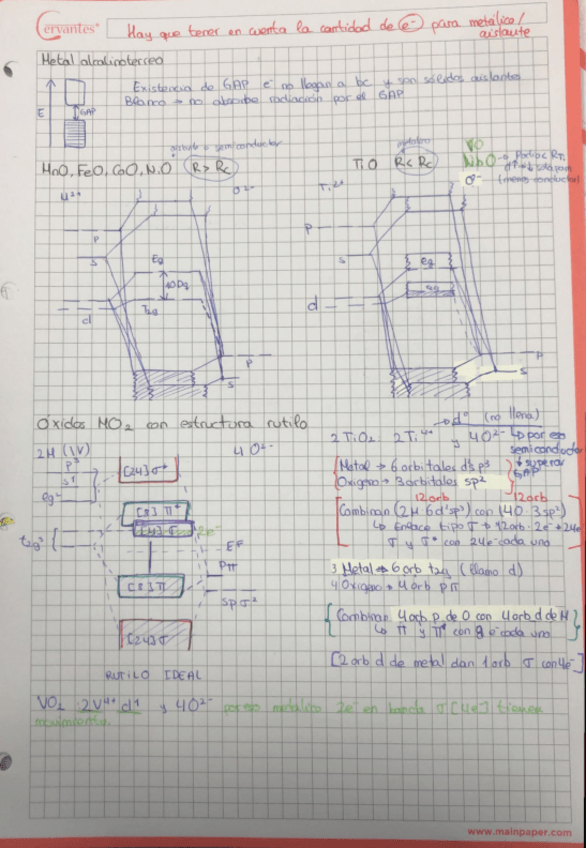 Cervantes
Hay que tener en cuenta la cantidad de e- para metálico/
aislante
Metal alcalinoterreo
E
GAP
Existencia de GAP e- no llegan a bc y son sólidos aislantes
Blanco → no absorbe radiación por el GAP
aislante o semiconductor
MnO, FeO, CoO, NiO R > Rc
M2+
O2-
p
s
d
Eg
10Dq
T2g
p
s
metálico
TiO R < Rc
VO
NbO → Rc
(menos conductor)
Ti2+
O2-
p
s
d
eg
p
s
Óxidos MO2 con estructura rutilo
2M (IV)
4 O2-
p3
s1
eg2
t2g3
[24] σ*
[8] π*
[4] σ 2e-
EF
pπ
[8] π
sp σ2
[24] σ
RUTILO IDEAL
→ d0 (no llena)
2TiO2: 2Ti4+ y 4O2- ↳ por eso
semiconductor
↓ superar
GAP
Metal → 6 orbitales d2sp3
Oxígeno → 3 orbitales sp2
12orb 12orb
Combinan (2M 6d2sp3) con (4O · 3sp2)
↳ Enlace tipo σ → 12orb · 2e- → 24e-
σ y σ* con 24e- cada uno
3 Metal → 6 orb t2g (llamo d)
4 Oxígeno → 4 orb pπ
Combinan 4orb p de O con 4orb d de M
↳ π y π* con 8 e- cada uno
[2 orb d de metal dan 1 orb σ con 4e-]
VO2 2V4+ d1 y 4O2- por eso metálico 2e- en banda σ [4e-] tienen
movimiento.
www.mainpaper.com